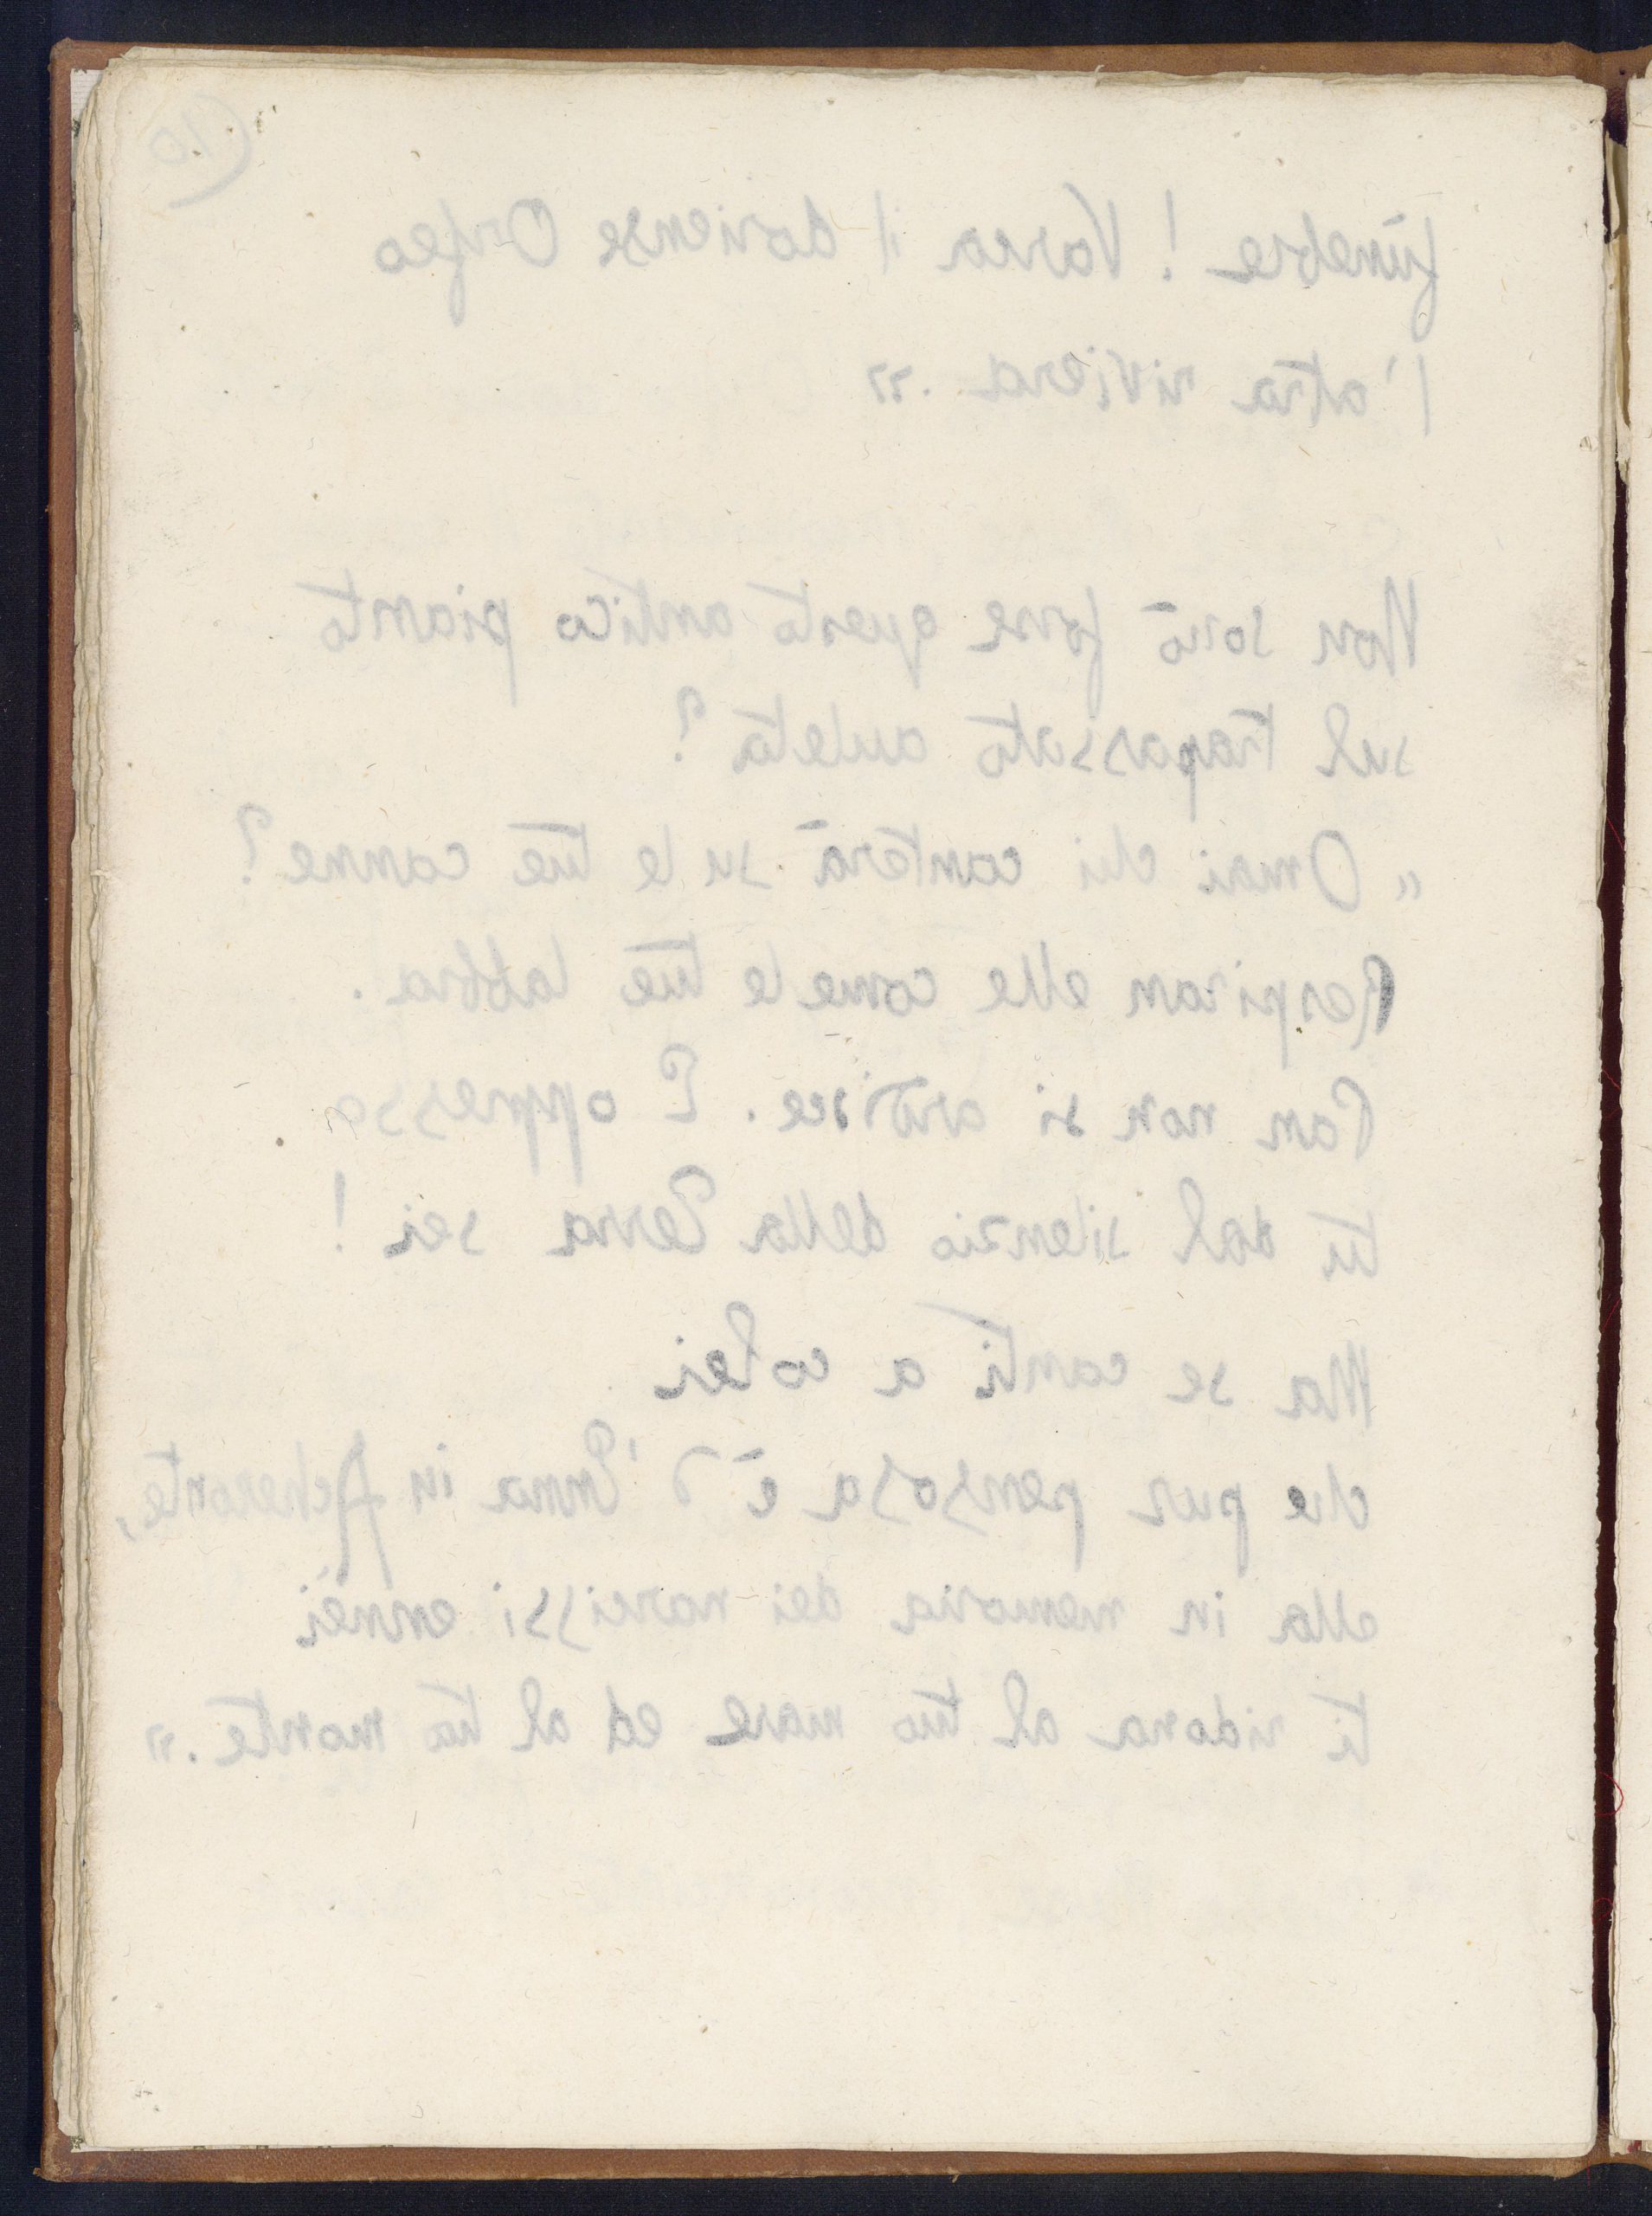 (10
fùnebre! Varca il doriense Orfeo
l'atra riviera.»
Non sonò forse questo antico pianto
sul trapassato auleta?
"Omai chi canterà su le tue canne?
Respiran elle come le tue labbra.
Pan non si ardisce. E oppresso
tu dal silenzio della Terra sei!
Ma se canti a colei
che pur pensosa è d'Enna in Acheronte,
ella in memoria dei narcissi ennèi
ti ridona al tuo mare ed al tuo monte.»